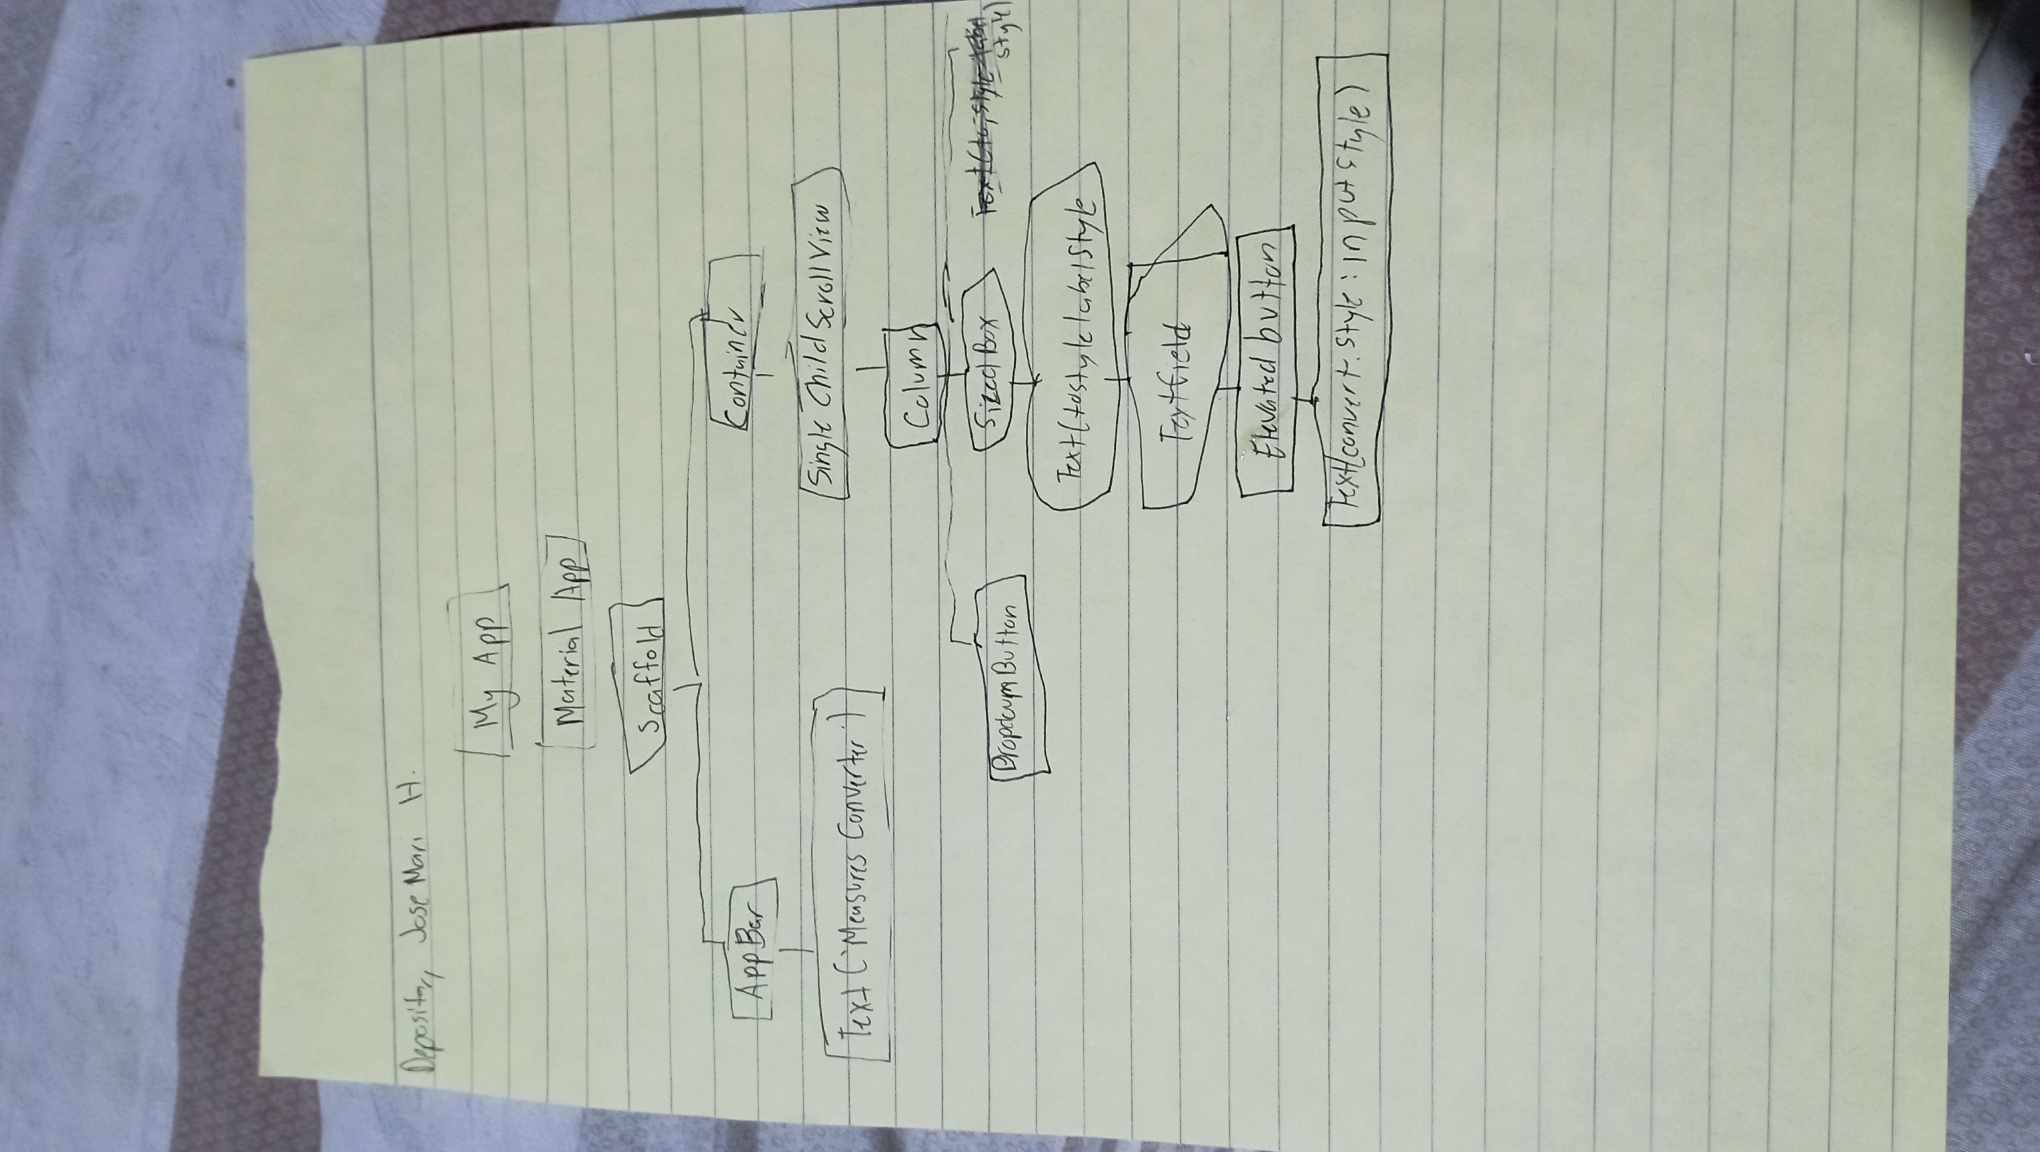 Depositar, Jose Mari H.
My App
Material App
Scaffold
AppBar
Container
Text ("Measures Converter)
Single Child Scroll View
Column
DropdownButton
SizedBox
Text(to, style label
style)
Text(tostyle labelstyle
Textfield
Elevated button
Text(convert: style : inputstyle)